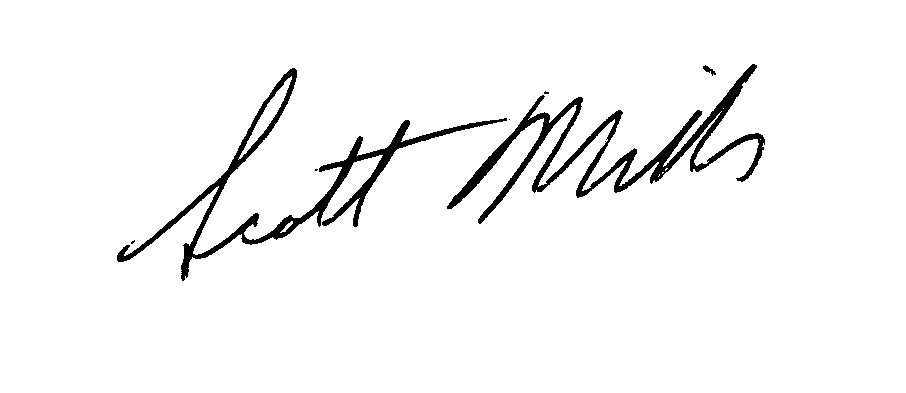 Scott Mills